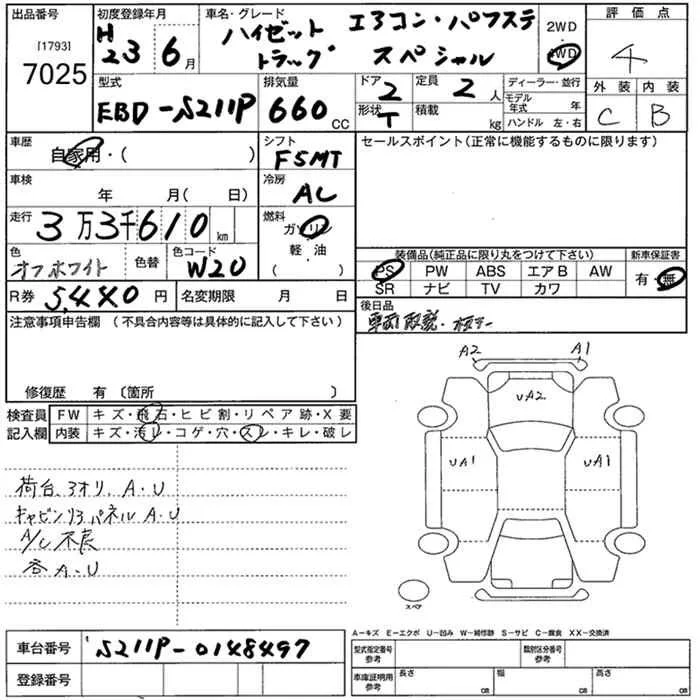 出品番号
[1793]
7025
初度登録年月
H23 6月
車名・グレード
ハイゼット トラック
エアコン・パワステ スペシャル
2WD
4WD
評価点
4
外装 内装
C B
型式
EBD-S211P
排気量
660 CC
ドア
2
形状
T
定員
2人
積載
kg
ディーラー・並行
モデル年式 年
ハンドル 左・右
車歴
自家用・( )
シフト
F5MT
セールスポイント(正常に機能するものに限ります)
車検
年 月( 日)
冷房
AC
走行
3万3千610 km
燃料
ガソリン
軽・油
( )
色
オフホワイト
色替
色コード
W20
装備品(純正品に限り丸をつけて下さい)
新車保証書
PS PW ABS エアB AW
SR ナビ TV カワ
有・無
R券 5,440円
名変期限 月 日
後日品
注意事項申告欄 (不具合内容等は具体的に記入して下さい)
修復歴 有 〔箇所 〕
検査員記入欄
FW キズ・飛石・ヒビ割・リペア跡・X要
内装 キズ・汚レ・コゲ・穴・スレ・キレ・破レ
荷台、3オリ、A・U
キャビンリヤパネルA・U
A/C不良
各A・U
A2
A1
UA2
UA1
UA1
スペア
A-キズ E-エクボ U-凹み W-補修跡 S-サビ C-腐食 XX-交換済
車台番号 S211P-0148497
登録番号
型式指定番号 参考
類別区分番号 参考
車庫証明用 参考
長さ cm
幅 cm
高さ cm